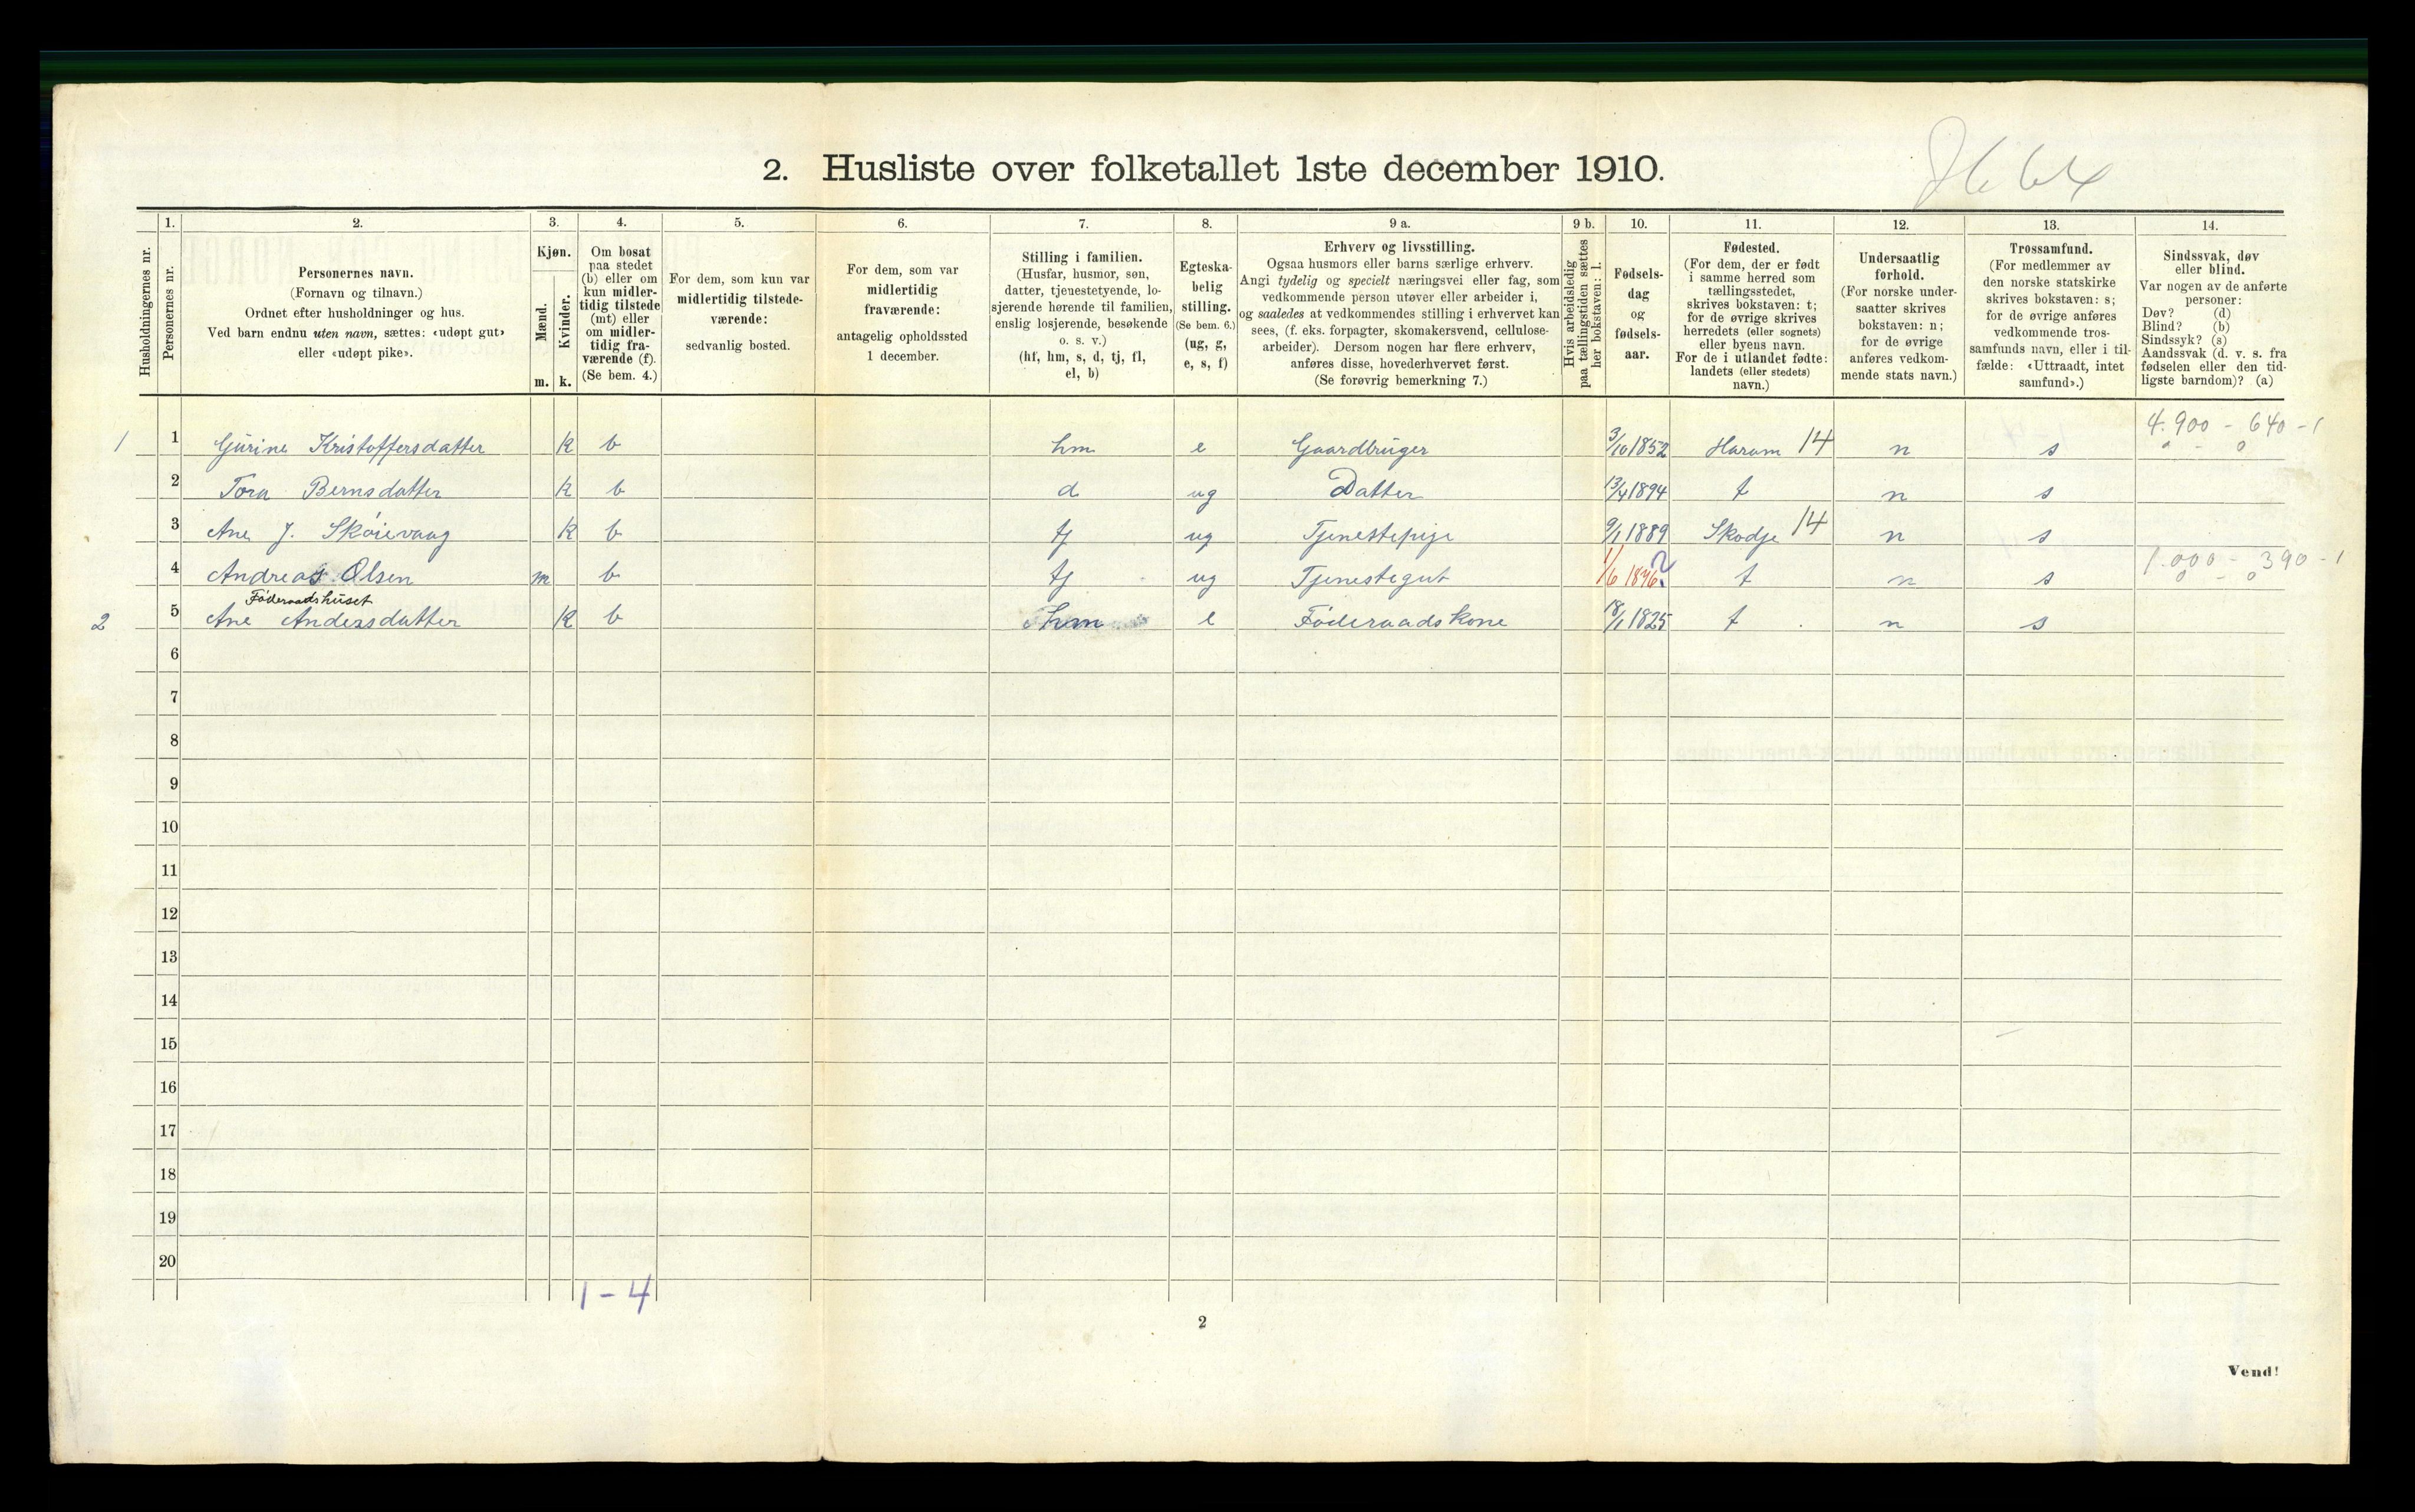 2. Husliste over folketallet 1ste december 1910.
1. 2. 3. 4. 5. 6. 7. 8. 9 a. 9 b. 10. 11. 12. 13. 14.
Husholdningernes nr.
Personernes nr.
Personernes navn.
(Fornavn og tilnavn.)
Ordnet efter husholdninger og hus.
Ved barn endnu uten navn, sættes: «udøpt gut»
eller «udøpt pike».
Kjøn.
Mænd.
Kvinder.
m. k.
Om bosat
paa stedet
(b) eller om
kun midler-
tidig tilstede
(mt) eller
om midler-
tidig fra-
værende (f).
(Se bem. 4.)
For dem, som kun var
midlertidig tilstede-
værende:
sedvanlig bosted.
For dem, som var
midlertidig
fraværende:
antagelig opholdssted
1 december.
Stilling i familien.
(Husfar, husmor, søn,
datter, tjenestetyende, lo-
sjerende hørende til familien,
enslig losjerende, besøkende
o. s. v.)
(hf, hm, s, d, tj, fl,
el, b)
Egteska-
belig
stilling.
(Se bem. 6.)
(ug, g,
e, s, f)
Erhverv og livsstilling.
Ogsaa husmors eller barns særlige erhverv.
Angi tydelig og specielt næringsvei eller fag, som
vedkommende person utøver eller arbeider i,
og saaledes at vedkommendes stilling i erhvervet kan
sees, (f. eks. forpagter, skomakersvend, cellulose-
arbeider). Dersom nogen har flere erhverv,
anføres disse, hovederhvervet først.
(Se forøvrig bemerkning 7.)
Hvis arbeidsledig
paa tællingstiden sættes
her bokstaven: l.
Fødsels-
dag
og
fødsels-
aar.
Fødested.
(For dem, der er født
i samme herred som
tællingsstedet,
skrives bokstaven: t;
for de øvrige skrives
herredets (eller sognets)
eller byens navn.
For de i utlandet fødte:
landets (eller stedets)
navn.)
Undersaatlig
forhold.
(For norske under-
saatter skrives
bokstaven: n;
for de øvrige
anføres vedkom-
mende stats navn.)
Trossamfund.
(For medlemmer av
den norske statskirke
skrives bokstaven: s;
for de øvrige anføres
vedkommende tros-
samfunds navn, eller i til-
fælde: «Uttraadt, intet
samfund».)
Sindssvak, døv
eller blind.
Var nogen av de anførte
personer:
Døv? (d)
Blind? (b)
Sindssyk? (s)
Aandssvak (d. v. s. fra
fødselen eller den tid-
ligste barndom)? (a)
4.900 - 640 - 1
1 1 Gurine Kristoffersdatter k b hm e Gaardbruger 3/10 1852 Haram 14 n s
2 Tora Bernsdatter k b d ug Datter 13/4 1894 t n s
3 Ane J. Skoievaag k b tj ug Tjenestepige 9/1 1889 Skodje 14 n s
1.000 - 390 - 1
4 Andreas Olsen m b tj ug Tjenestegut 1/6 1846? t n s
Føderaadshuset
2 5 Ane Andersdatter k b hm e Føderaadskone 18/1 1825 t n s
6
7
8
9
10
11
12
13
14
15
16
17
18
19
20
1 - 4
2
Vend!